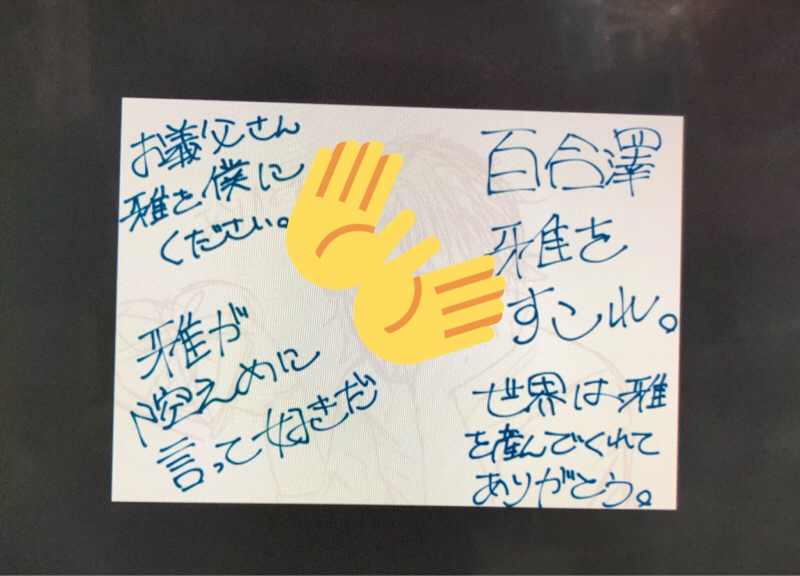 お義父さん
雅を僕に
ください。
百合澤
雅を
すこれ。
雅が
控えめに
言って好きだ
世界は雅
を産んでくれて
ありがとう。